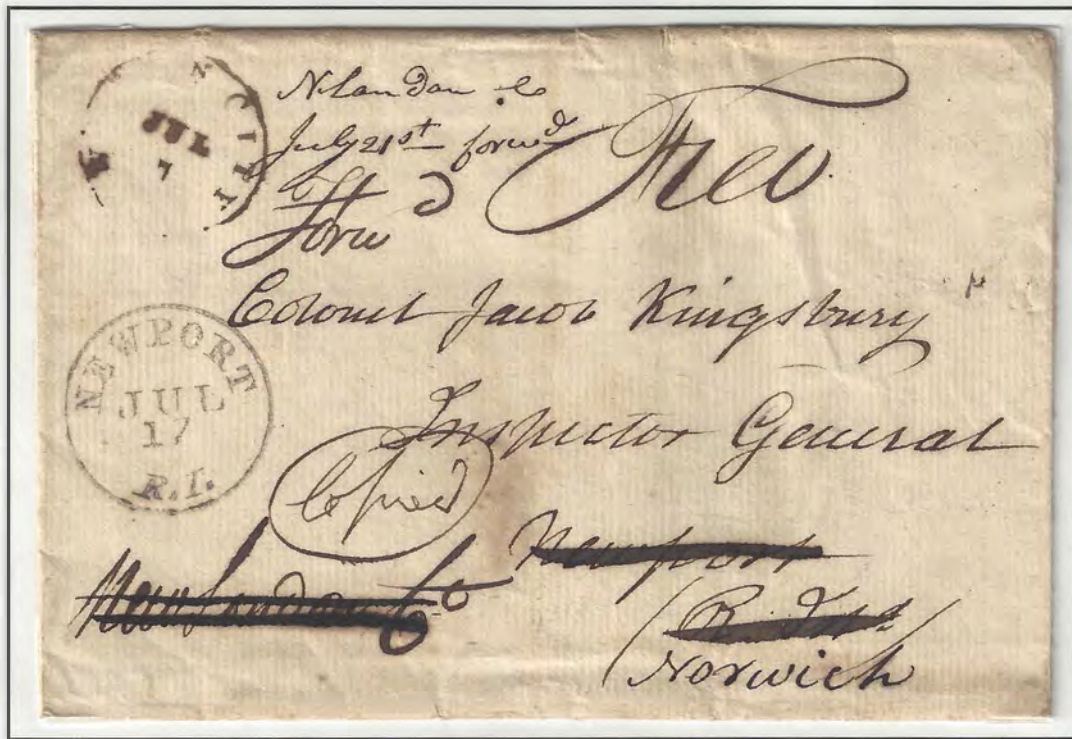 CITY
JUL
7
N London C
July 21st forwd
Forwd
Free
Colonel Jacob Kingsbury
Inspector General
NEWPORT
JUL
17
R.I.
Copied
Newport
New London Co
R. Isd
Norwich